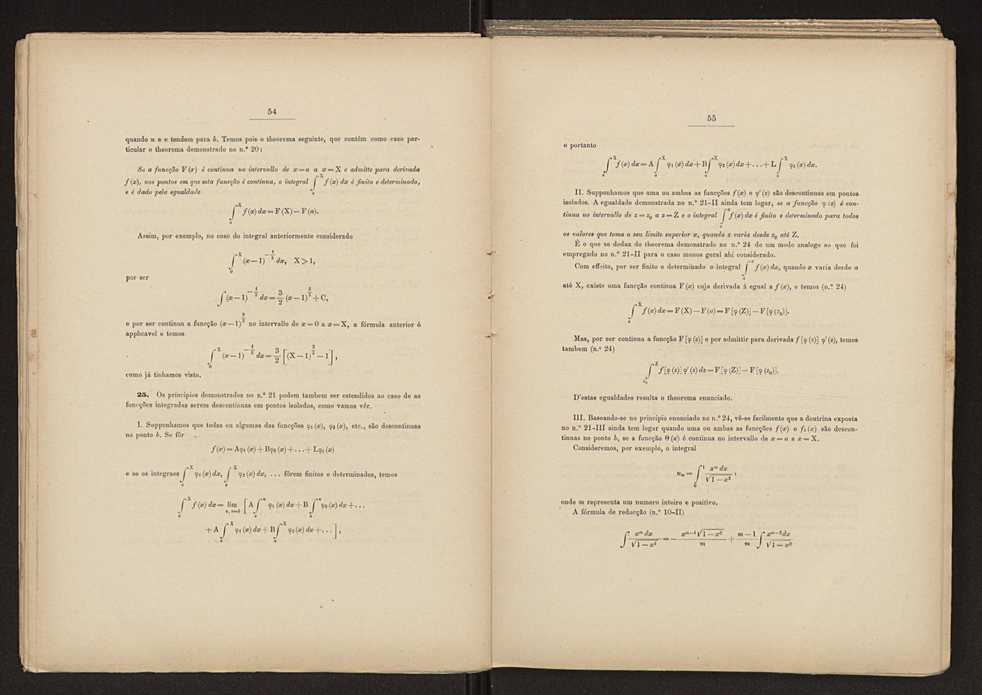 54
quando u e v tendem para b. Temos pois o theorema seguinte, que contém como caso par-
ticular o theorema demonstrado no n.º 20:
Se a funcção F(x) é continua no intervallo de x=a a x=X e admitte para derivada
f(x), nos pontos em que esta funcção é continua, o integral ∫_a^X f(x) dx é finito e determinado,
e é dado pela egualdade
∫_a^X f(x) dx = F(X) − F(a).
Assim, por exemplo, no caso do integral anteriormente considerado
∫_0^X (x−1)^{−1/3} dx, X>1,
por ser
∫(x−1)^{−1/3} dx = 3/2 (x−1)^{2/3} + C,
e por ser continua a funcção (x−1)^{2/3} no intervallo de x=0 a x=X, a fórmula anterior é
applicavel e temos
∫_0^X (x−1)^{−1/3} dx = 3/2 [(X−1)^{2/3} − 1],
como já tinhamos visto.
25. Os principios demonstrados no n.º 21 podem tambem ser estendidos ao caso de as
funcções integradas serem descontinuas em pontos isolados, como vamos vêr.
I. Supponhamos que todas ou algumas das funcções φ₁(x), φ₂(x), etc., são descontinuas
no ponto b. Se fôr
f(x) = Aφ₁(x) + Bφ₂(x) + . . . + Lφₗ(x)
e se os integraes ∫_a^X φ₁(x) dx, ∫_a^X φ₂(x) dx, . . . fôrem finitos e determinados, temos
∫_a^X f(x) dx = lim [A∫_a^u φ₁(x) dx + B∫_a^u φ₂(x) dx + . . .
+ A∫_v^X φ₁(x) dx + B∫_v^X φ₂(x) dx + . . . ],
55
e portanto
∫_a^X f(x) dx = A∫_a^X φ₁(x) dx + B∫_a^X φ₂(x) dx + . . . + L∫_a^X φₗ(x) dx.
II. Supponhamos que uma ou ambas as funcções f(x) e φ'(z) são descontinuas em pontos
isolados. A egualdade demonstrada no n.º 21-II ainda tem logar, se a funcção φ(z) é con-
tinua no intervallo de z=z₀ a z=Z e o integral ∫_a^x f(x) dx é finito e determinado para todos
os valores que toma o seu limite superior x, quando z varía desde z₀ até Z.
É o que se deduz do theorema demonstrado no n.º 24 de um modo analogo ao que foi
empregado no n.º 21-II para o caso menos geral ahi considerado.
Com effeito, por ser finito e determinado o integral ∫_a^x f(x) dx, quando x varia desde a
até X, existe uma funcção continua F(x) cuja derivada é egual a f(x), e temos (n.º 24)
∫_a^X f(x) dx = F(X) − F(a) = F[φ(Z)] − F[φ(z₀)].
Mas, por ser continua a funcção F[φ(z)] e por admittir para derivada f[φ(z)] φ'(z), temos
tambem (n.º 24)
∫_{z₀}^Z f[φ(z)] φ'(z) dz = F[φ(Z)] − F[φ(z₀)].
D'estas egualdades resulta o theorema enunciado.
III. Baseando-se no principio enunciado no n.º 24, vê-se facilmente que a doutrina exposta
no n.º 21-III ainda tem logar quando uma ou ambas as funcções f(x) e f₁(x) são descon-
tinuas no ponto b, se a funcção θ(x) é continua no intervallo de x=a a x=X.
Consideremos, por exemplo, o integral
uₘ = ∫_0^1 xᵐ dx / √(1−x²),
onde m representa um numero inteiro e positivo.
A fórmula de reducção (n.º 10-II)
∫ xᵐ dx / √(1−x²) = − xᵐ⁻¹√(1−x²) / m + (m−1)/m ∫ xᵐ⁻² dx / √(1−x²)